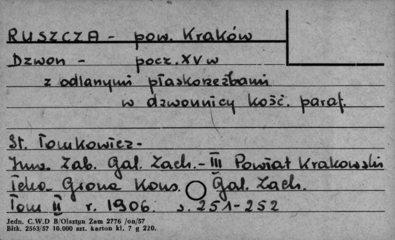 RUSZCZA - pow. Kraków
Dzwon - pocz. XV w
z odlanymi płaskorzeźbami
w dzwonnicy kość. paraf.
St. Tomkowicz -
Inw. Zab. Gal. Zach. - III Powiat Krakowski
Teka Grona Kons. Gal. Zach.
Tom II r. 1906. s. 251-252
Jedn. C.W.D B/Olsztyn Zam 2776 /on/57
Bltk. 2563/57 10.000 szt. karton kl. 7 g 220.